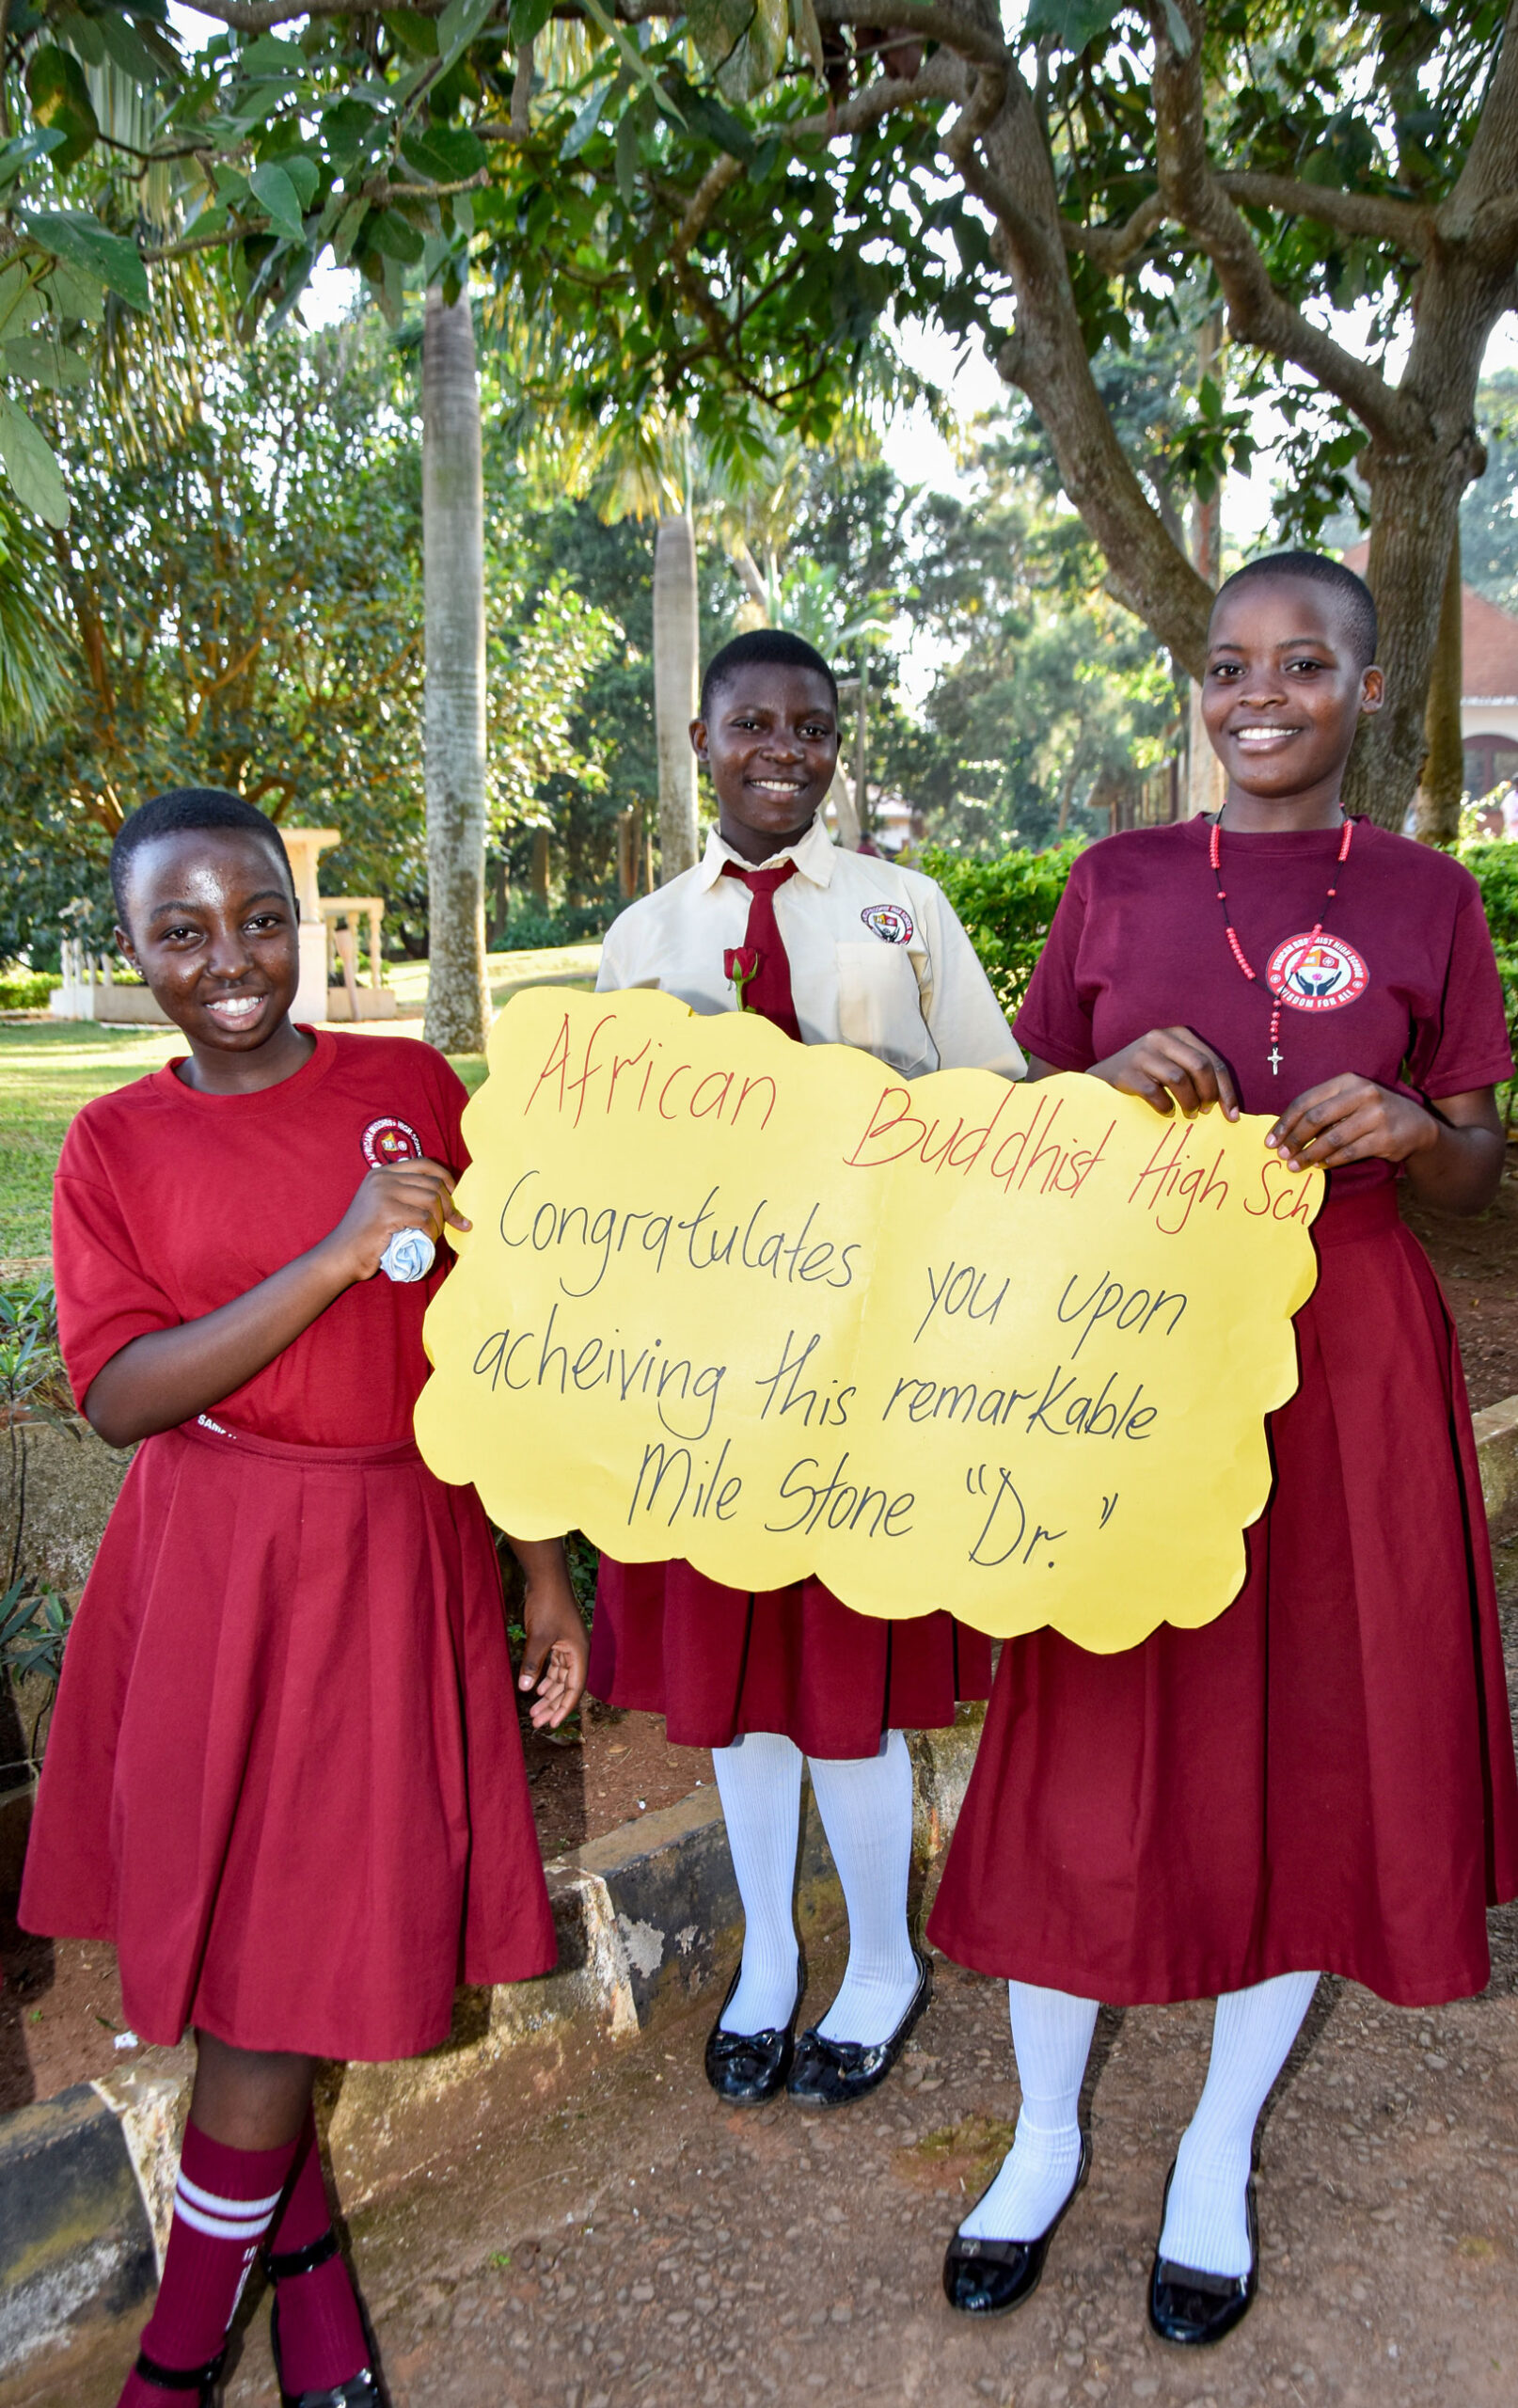 African Buddhist High Sch
Congratulates you upon
acheiving this remarkable
Mile Stone "Dr."
AFRICAN BUDDHIST HIGH SCHOOL
WISDOM FOR ALL